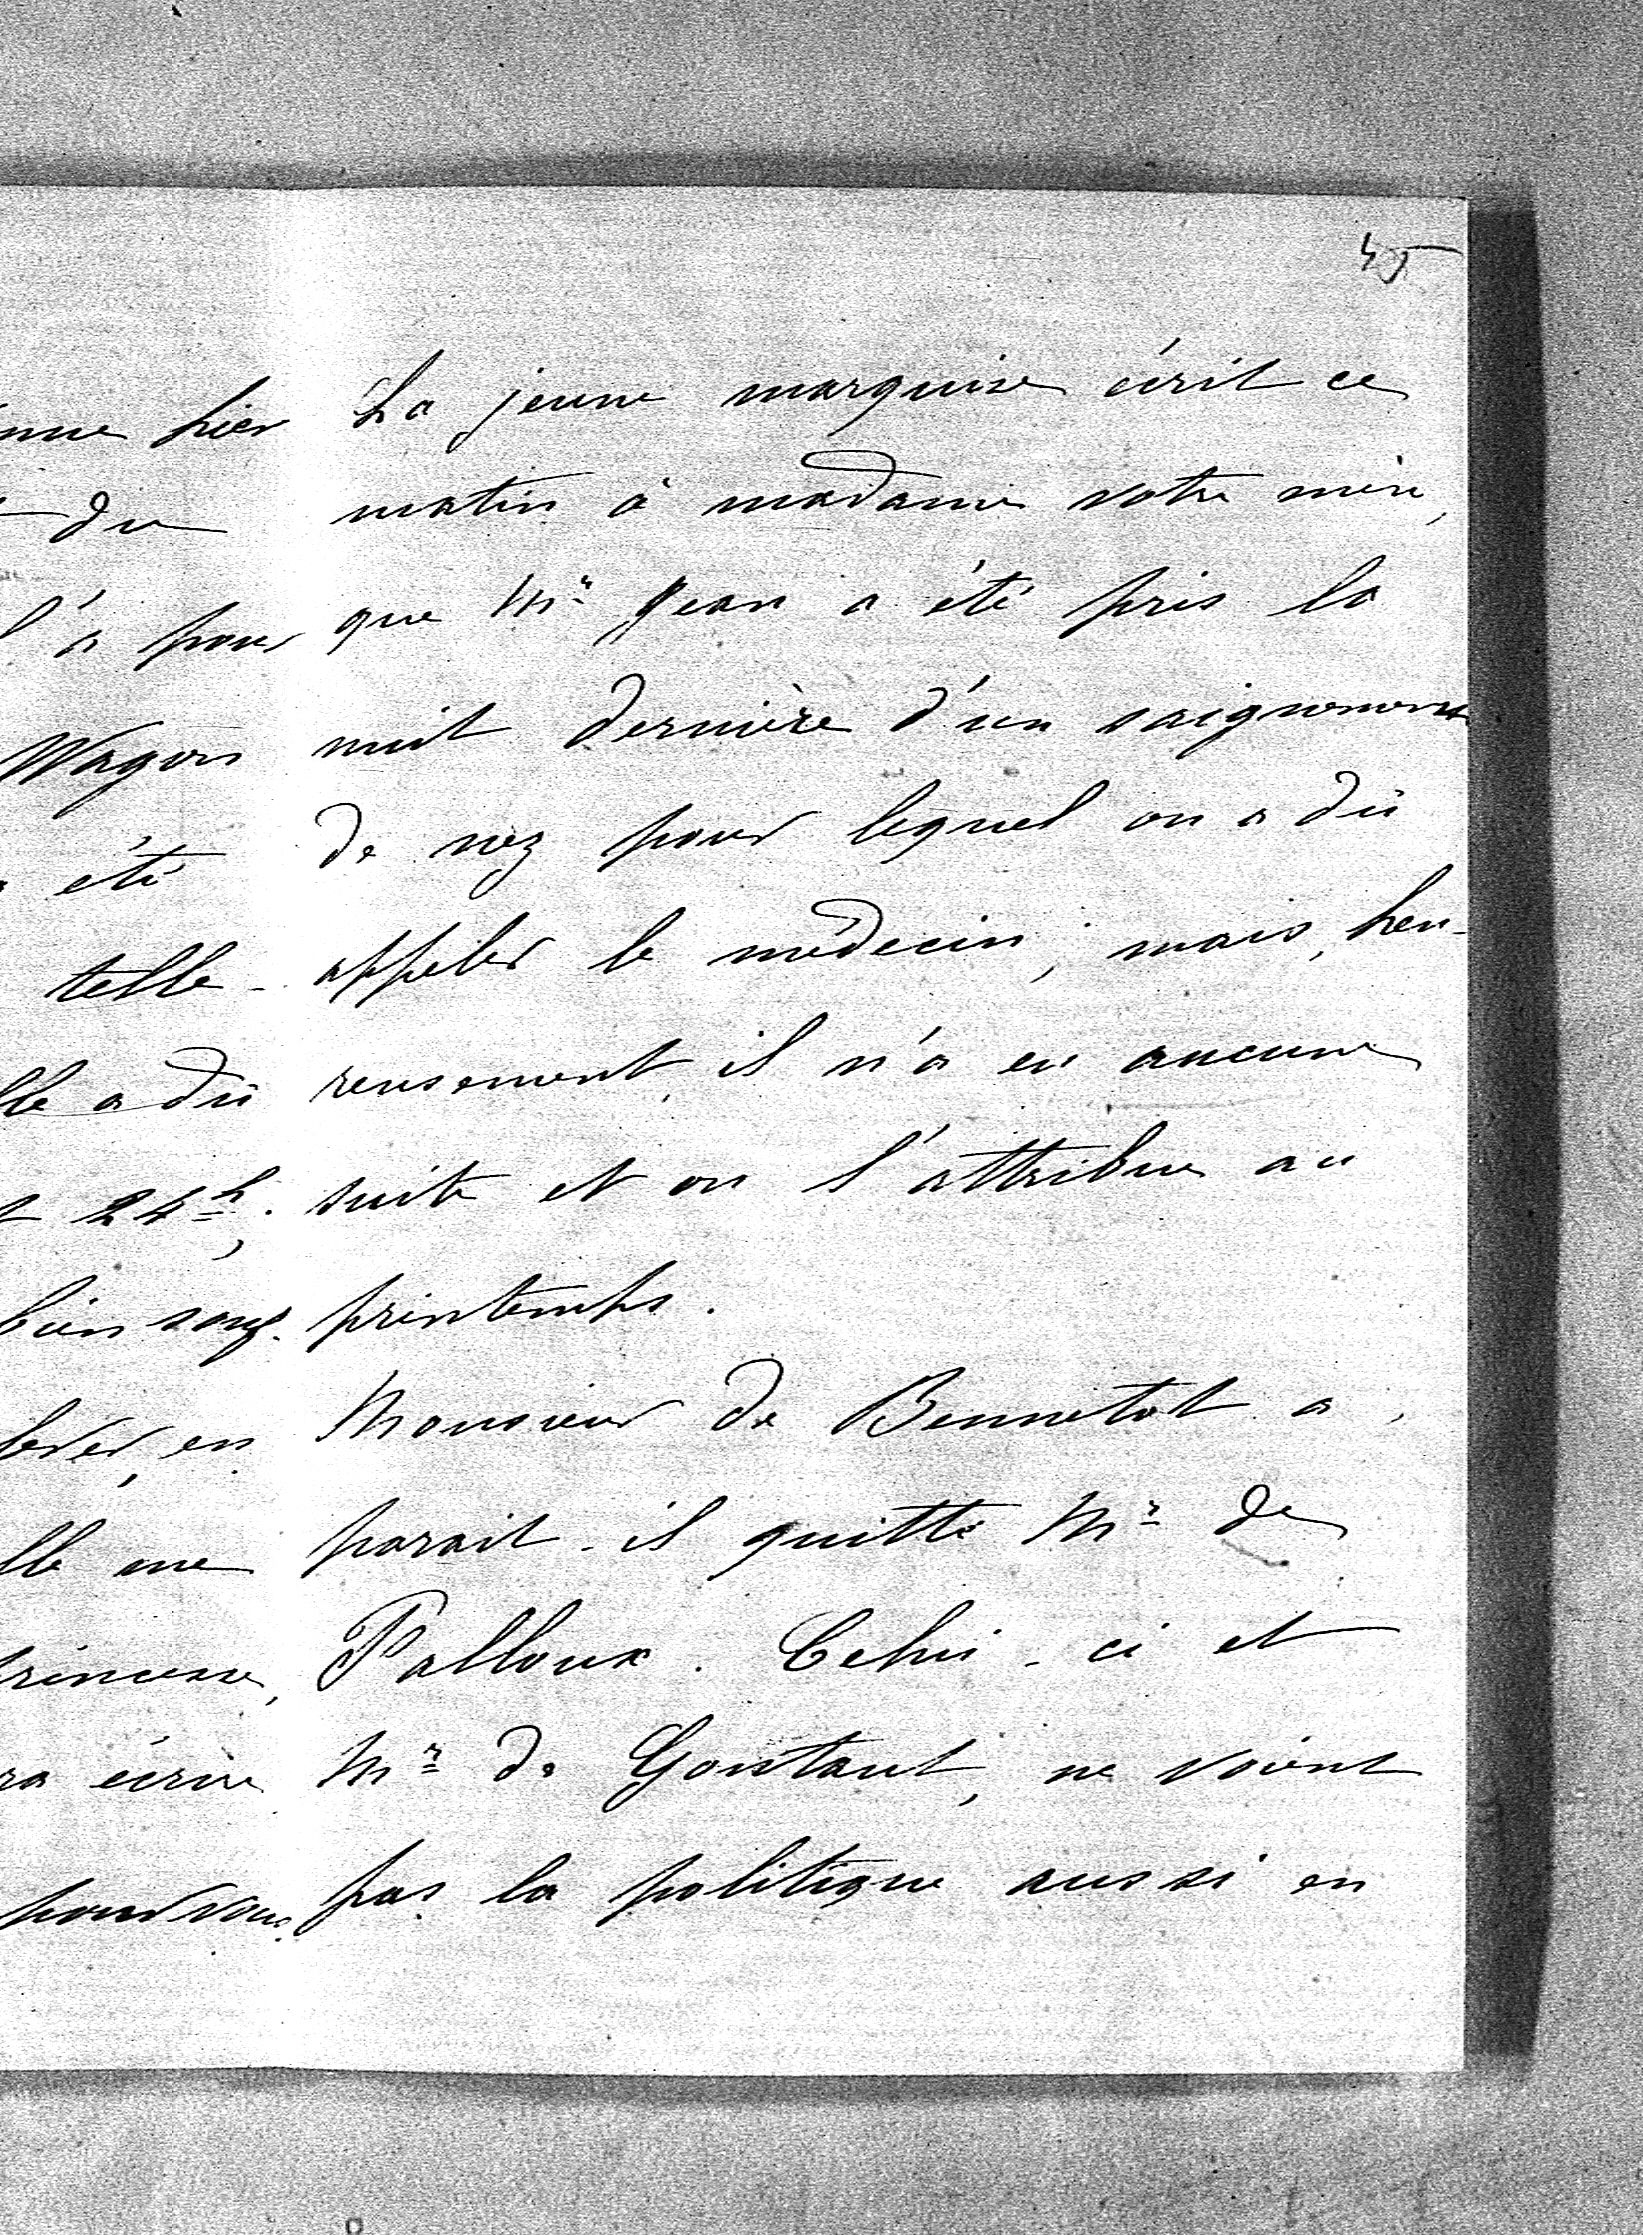 45
nue hier
du
l'a pour
Wagon
été
telle-
lle a dû
24h,
bien souf-
en
lle me
princesse,
ra écrire
pour vous.
La jeune marquise écrit ce
matin à madame votre mère,
que Mr Jean a été pris la
nuit dernière d'un saignement
de nez pour lequel on a dû
appeler le médecin ; mais, heu-
reusement, il n'a eu aucune
suite et on l'attribue au
printemps.
Monsieur de Bennetot a,
parait-il quitté Mr de
Falloux. Celui-ci et
Mr de Gontaut, ne voient
pas la politique aussi en